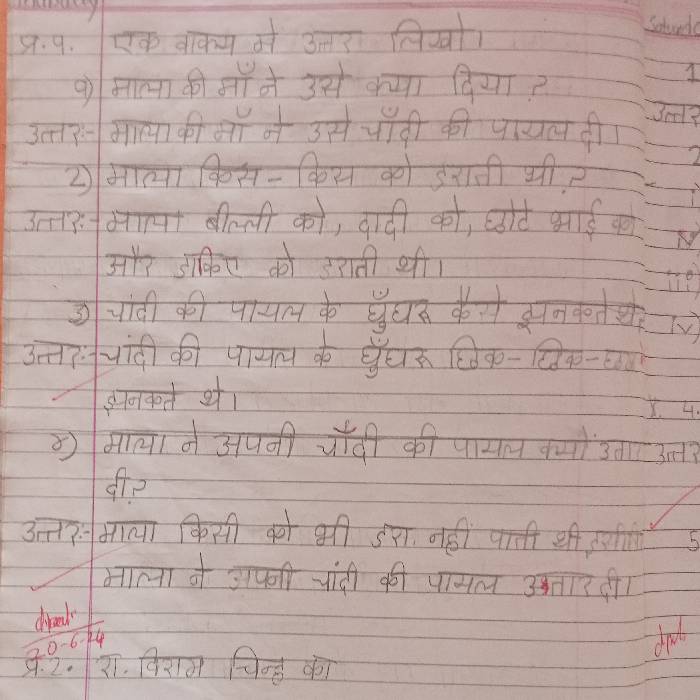 प्र.१. एक वाक्य मे उत्तर लिखो।
१) माला की माँ ने उसे क्या दिया ?
उत्तर:- माला की माँ ने उसे चाँदी की पायल दी।
2) माला किस - किस को डराती थी ?
उत्तर:- माला बील्ली को, दादी को, छोटे भाई को
और डाकिए को डराती थी।
३) चांदी की पायल के घुँघरू कैसे झनकते थे?
उत्तर:- चांदी की पायल के घुँघरू छिक - छिक -
झनकते थे।
४) माला ने अपनी चाँदी की पायल क्यों उतार
दी ?
उत्तर:- माला किसी को भी डरा. नहीं पाती थी
माला ने अपनी चांदी की पायल उतार दी।
20-6-24
प्र.2. रा. विराम चिन्ह का
1
उत्तर
2
iii)
iv)
4.
उत्तर
5